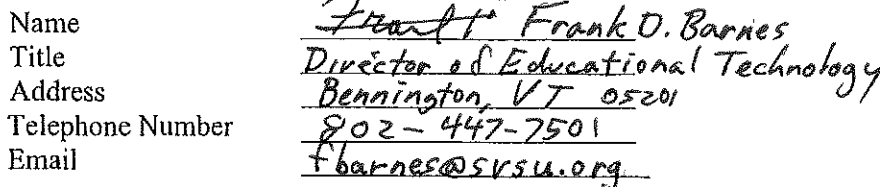 Name Frank D. Barnes
Title Director of Educational Technology
Address Bennington, VT 05201
Telephone Number 802-447-7501
Email fbarnes@svsu.org